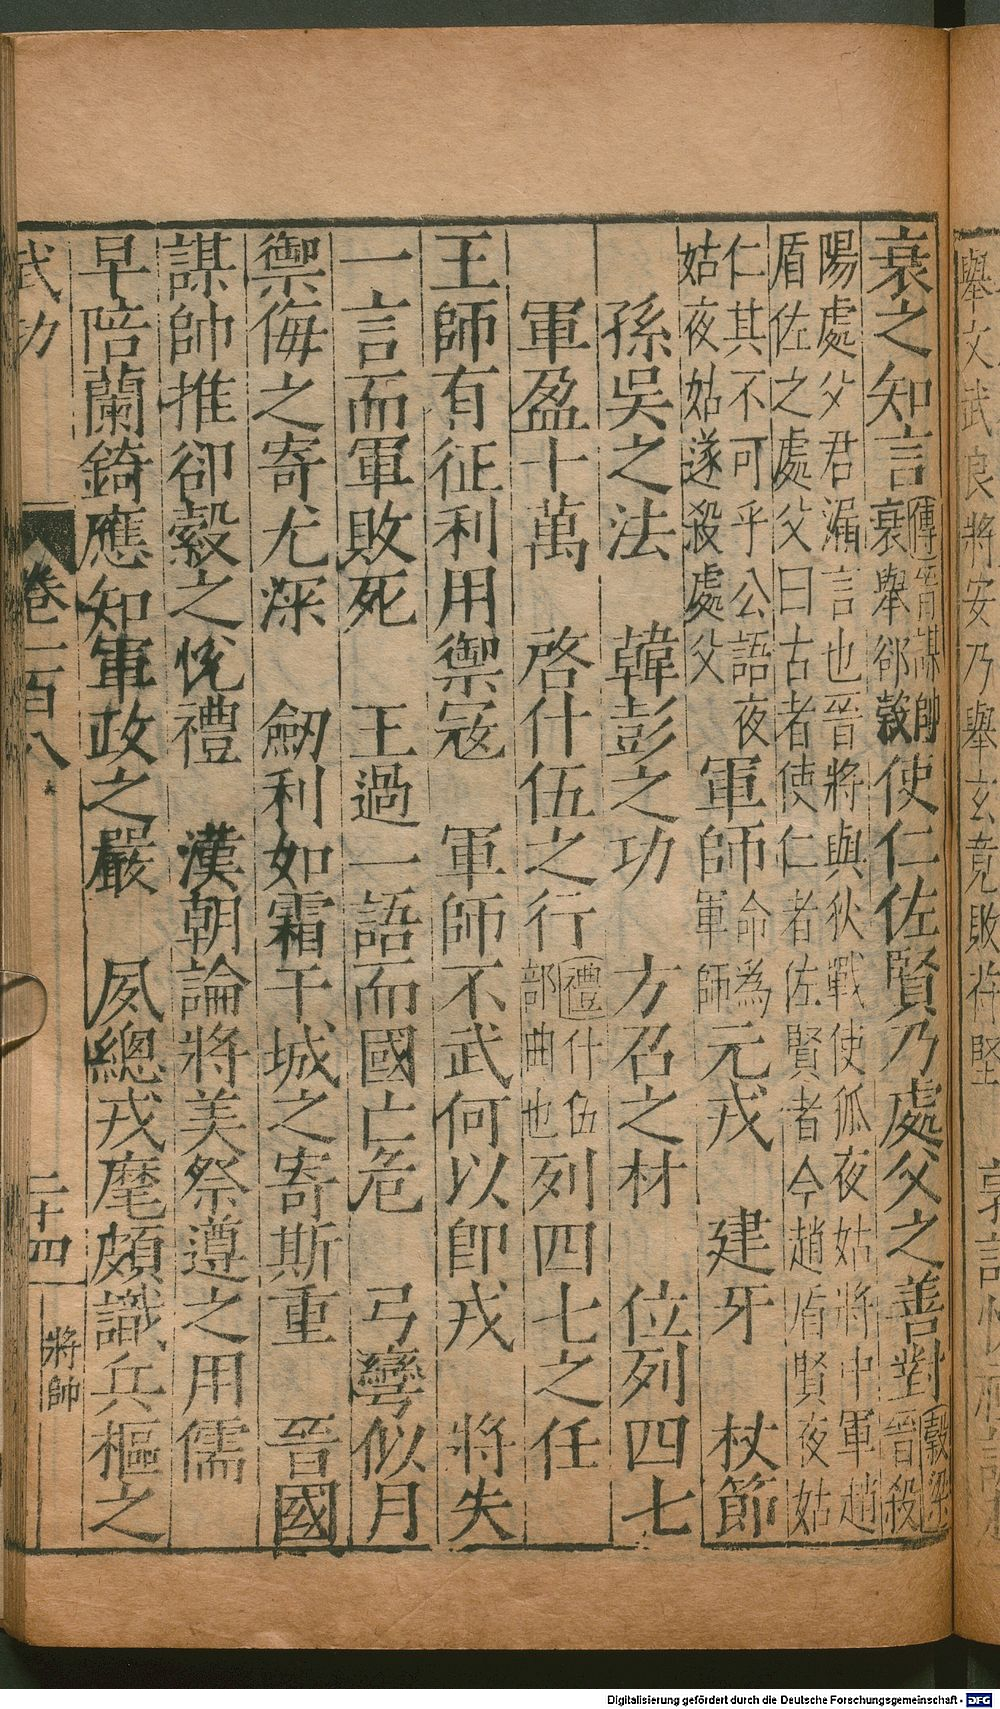 舉文武良將安乃舉玄竟敗苻堅
衰之知言傳晉謀帥衰舉郤縠使仁佐賢乃處父之善對穀梁晉殺
陽處父君漏言也晉將與狄戰使狐夜姑將中軍趙
盾佐之處父曰古者使仁者佐賢者今趙盾賢夜姑
仁其不可乎公語夜姑夜姑遂殺處父　軍師命為軍師元戎　建牙　杖節
孫吳之法　韓彭之功　方召之材　位列四七
軍盈十萬　啓什伍之行禮什伍部曲也列四七之任
王師有征利用禦寇　軍師不武何以即戎　將失
一言而軍敗死　王過一語而國亡危　弓彎似月
禦侮之寄尤深　劒利如霜干城之寄斯重　晉國
謀帥推郤縠之悅禮　漢朝論將美祭遵之用儒
早陪蘭錡應知軍政之嚴　夙總戎麾頗識兵樞之
武功　卷一百八　二十四　將帥
Digitalisierung gefördert durch die Deutsche Forschungsgemeinschaft - DFG